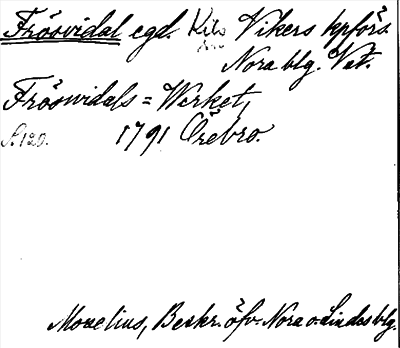 Frösvidal egd. Kils Vikers kpförs.
Nora blg. Vst.
Fröswidals = Werket,
S. 120. 1791 Örebro.
Moselius, Beskr. öfv. Nora o. Lindes blg.